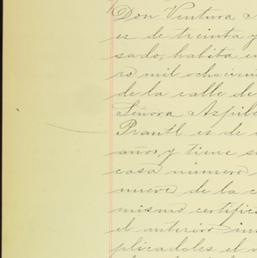 Don Ventura
es de treinta y
sado, habita en
ro mil ochocien
de la calle de
Señora Azpil
Prantl es de
años, y tiene s
casa número
nueve de la c
mismo certific
el anterior in
plicadoles el